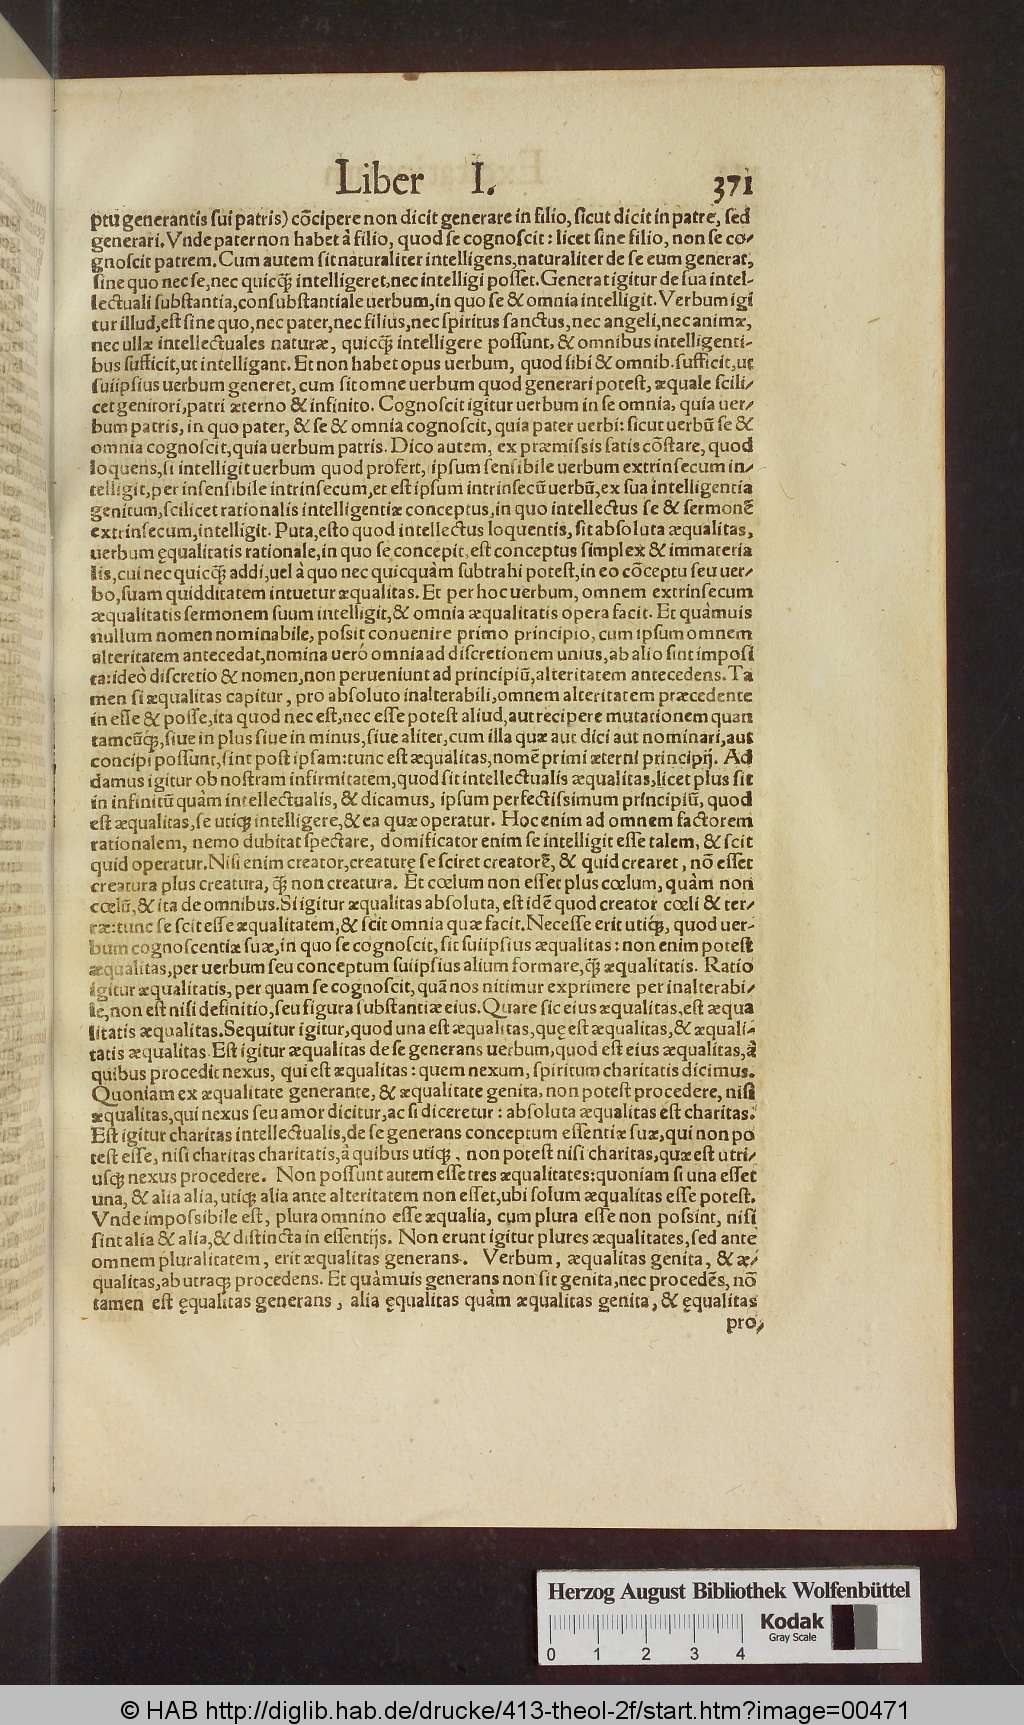 Liber I. 371
ptu generantis sui patris) cōcipere non dicit generare in filio, sicut dicit in patre, sed
generari. Vnde pater non habet à filio, quod se cognoscit: licet sine filio, non se co-
gnoscit patrem. Cum autem sit naturaliter intelligens, naturaliter de se eum generat,
sine quo nec se, nec quicq̃ intelligeret, nec intelligi posset. Generat igitur de sua intel-
lectuali substantia, consubstantiale uerbum, in quo se & omnia intelligit. Verbum igi
tur illud, est sine quo, nec pater, nec filius, nec spiritus sanctus, nec angeli, nec animæ,
nec ullæ intellectuales naturæ, quicq̃ intelligere possunt, & omnibus intelligenti-
bus sufficit, ut intelligant. Et non habet opus uerbum, quod sibi & omnib. sufficit, ut
suiipsius uerbum generet, cum sit omne uerbum quod generari potest, æquale scili-
cet genitori, patri æterno & infinito. Cognoscit igitur uerbum in se omnia, quia uer-
bum patris, in quo pater, & se & omnia cognoscit, quia pater uerbi: sicut uerbū se &
omnia cognoscit, quia uerbum patris. Dico autem, ex præmissis satis cōstare, quod
loquens, si intelligit uerbum quod profert, ipsum sensibile uerbum extrinsecum in-
telligit, per insensibile intrinsecum, et est ipsum intrinsecū uerbū, ex sua intelligentia
genitum, scilicet rationalis intelligentiæ conceptus, in quo intellectus se & sermonē
extrinsecum, intelligit. Puta, esto quod intellectus loquentis, sit absoluta æqualitas,
uerbum ęqualitatis rationale, in quo se concepit, est conceptus simplex & immateria
lis, cui nec quicq̃ addi, uel à quo nec quicquàm subtrahi potest, in eo cōceptu seu uer-
bo, suam quidditatem intuetur æqualitas. Et per hoc uerbum, omnem extrinsecum
æqualitatis sermonem suum intelligit, & omnia æqualitatis opera facit. Et quàmuis
nullum nomen nominabile, possit conuenire primo principio, cum ipsum omnem
alteritatem antecedat, nomina uerò omnia ad discretionem unius, ab alio sint imposi
ta: ideò discretio & nomen, non perueniunt ad principiū, alteritatem antecedens. Ta
men si æqualitas capitur, pro absoluto inalterabili, omnem alteritatem præcedente
in esse & posse, ita quod nec est, nec esse potest aliud, aut recipere mutationem quan
tamcūq;, siue in plus siue in minus, siue aliter, cum illa quæ aut dici aut nominari, aut
concipi possunt, sint post ipsam: tunc est æqualitas, nomē primi æterni principij. Ad
damus igitur ob nostram infirmitatem, quod sit intellectualis æqualitas, licet plus sit
in infinitū quàm intellectualis, & dicamus, ipsum perfectissimum principiū, quod
est æqualitas, se utiq; intelligere, & ea quæ operatur. Hoc enim ad omnem factorem
rationalem, nemo dubitat spectare, domificator enim se intelligit esse talem, & scit
quid operatur. Nisi enim creator, creaturę se sciret creatorē, & quid crearet, nō esset
creatura plus creatura, q̃ non creatura. Et cœlum non esset plus cœlum, quàm non
cœlū, & ita de omnibus. Si igitur æqualitas absoluta, est idē quod creator cœli & ter-
ræ: tunc se scit esse æqualitatem, & scit omnia quæ facit. Necesse erit utiq;, quod uer-
bum cognoscentiæ suæ, in quo se cognoscit, sit suiipsius æqualitas: non enim potest
æqualitas, per uerbum seu conceptum suiipsius alium formare, q̃ æqualitatis. Ratio
igitur æqualitatis, per quam se cognoscit, quā nos nitimur exprimere per inalterabi-
le, non est nisi definitio, seu figura substantiæ eius. Quare sic eius æqualitas, est æqua
litatis æqualitas. Sequitur igitur, quod una est æqualitas, quę est æqualitas, & æquali-
tatis æqualitas. Est igitur æqualitas de se generans uerbum, quod est eius æqualitas, à
quibus procedit nexus, qui est æqualitas: quem nexum, spiritum charitatis dicimus.
Quoniam ex æqualitate generante, & æqualitate genita, non potest procedere, nisi
æqualitas, qui nexus seu amor dicitur, ac si diceretur: absoluta æqualitas est charitas.
Est igitur charitas intellectualis, de se generans conceptum essentiæ suæ, qui non po
test esse, nisi charitas charitatis, à quibus utiq;, non potest nisi charitas, quæ est utri-
usq; nexus procedere. Non possunt autem esse tres æqualitates: quoniam si una esset
una, & alia alia, utiq; alia ante alteritatem non esset, ubi solum æqualitas esse potest.
Vnde impossibile est, plura omnino esse æqualia, cum plura esse non possint, nisi
sint alia & alia, & distincta in essentijs. Non erunt igitur plures æqualitates, sed ante
omnem pluralitatem, erit æqualitas generans. Verbum, æqualitas genita, & æ-
qualitas, ab utraq; procedens. Et quàmuis generans non sit genita, nec procedēs, nō
tamen est ęqualitas generans, alia ęqualitas quàm æqualitas genita, & ęqualitas
pro-
Herzog August Bibliothek Wolfenbüttel
Kodak
Gray Scale
0 1 2 3 4
© HAB http://diglib.hab.de/drucke/413-theol-2f/start.htm?image=00471